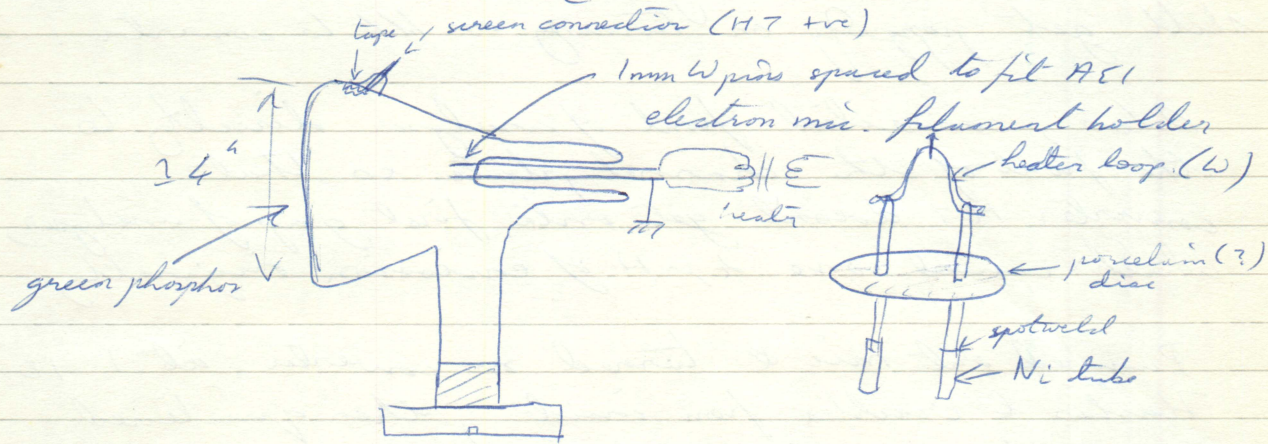 tape
screen connection (HT +ve)
1mm W pins spaced to fit AEI
electron mic. filament holder
heater loop. (W)
4"
heater
green phosphor
porcelain (?)
disc
spotweld
Ni tube